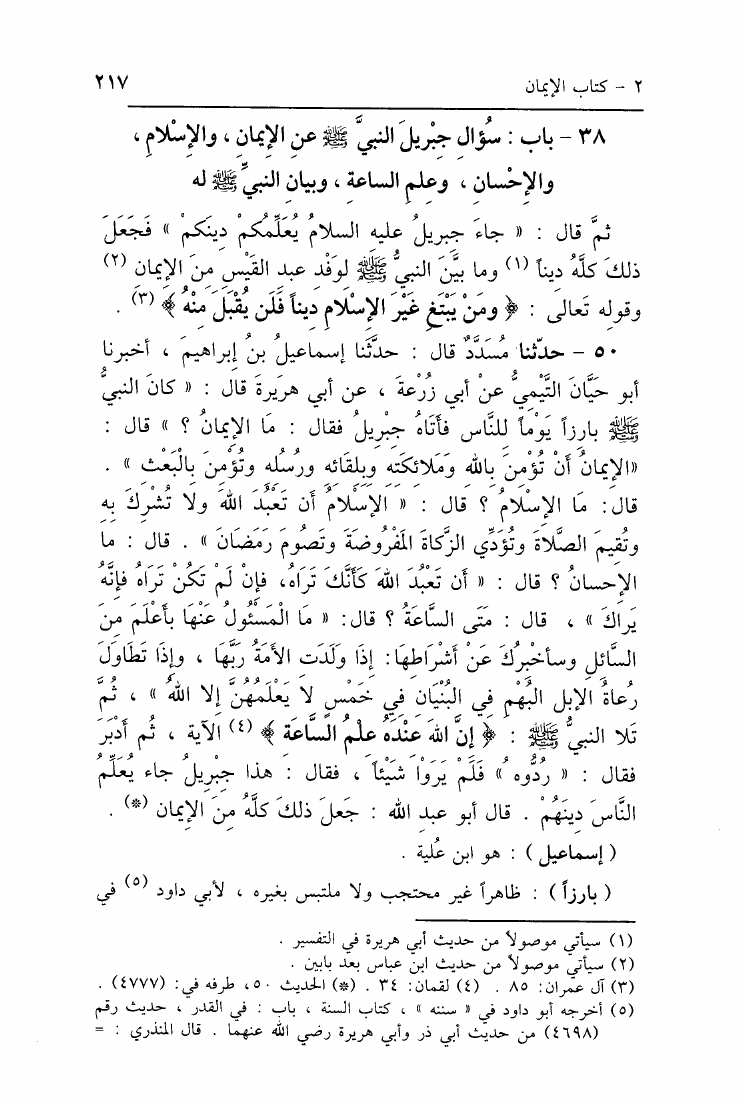 ٢ - كتاب الإيمان ٢١٧
٣٨ - باب : سُؤال جِبْريلَ النبيَّ ﷺ عنِ الإيمانِ ، والإسْلامِ ،
والإحْسانِ ، وعلمِ الساعةِ ، وبيانِ النبيِّ ﷺ له
ثمَّ قال : « جاءَ جبريلُ عليه السلامُ يُعَلِّمُكُمْ دِينَكمْ » فَجَعَلَ
ذلكَ كلَّهُ ديناً (١) وما بيَّنَ النبيُّ ﷺ لوَفْدِ عبد القَيْسِ مِنَ الإيمانِ (٢)
وقوله تَعالى : ﴿ ومَنْ يَبْتَغِ غَيْرَ الإسْلامِ ديناً فَلَن يُقْبَلَ مِنْهُ ﴾ (٣) .
٥٠ - حدّثنا مُسَدَّدٌ قال : حدَّثَنا إسماعيلُ بنُ إبراهيمَ ، أخبرنا
أبو حَيَّانَ التَّيْمِيُّ عنْ أبي زُرْعةَ ، عن أبي هريَرةَ قال : « كانَ النبيُّ
ﷺ بارِزاً يَوْماً للنَّاسِ فأتَاهُ جِبْريلُ فقال : مَا الإيمانُ ؟ » قال :
«الإيمانُ أنْ تُؤْمِنَ باللهِ وَمَلائكَتِهِ وبِلِقائِهِ ورُسُلِهِ وتُؤْمِنَ بالْبَعْثِ » .
قالَ: مَا الإسْلامُ ؟ قال : « الإسْلامُ أن تَعْبُدَ اللهَ ولا تُشْرِكَ بِهِ
وتُقِيمَ الصَّلاةَ وتُؤَدِّي الزَّكاةَ المَفْرُوضَةَ وتَصُومَ رَمَضَانَ » . قال : ما
الإحسانُ ؟ قال : « أن تَعْبُدَ اللهَ كَأنَّكَ تَرَاهُ، فإنْ لَمْ تَكُنْ تَرَاهُ فإنَّهُ
يَرَاكَ » ، قال : مَتَى السَّاعَةُ ؟ قال: « مَا الْمَسْئُولُ عَنْهَا بأعْلَمَ مِنَ
السَّائلِ وسأخْبِرُكَ عَنْ أشْراطِهَا: إذَا وَلَدَتِ الأمَةُ رَبَّها ، وإذَا تَطَاوَلَ
رُعاةُ الإبلِ البُهْمِ في البُنْيَانِ فِي خَمْسٍ لا يَعْلَمُهُنَّ إلا اللهُ » ، ثُمَّ
تَلا النبيُّ ﷺ : ﴿ إنَّ اللهَ عِنْدَهُ عِلْمُ السَّاعَةِ ﴾ (٤) الآية ، ثُم أدْبَرَ
فقال : « رُدُّوه » فَلَمْ يَرَوْا شَيْئاً ، فقال : هذا جِبْريلُ جاء يُعَلِّمُ
النَّاسَ دِينَهُمْ . قال أبو عبد الله : جَعلَ ذلكَ كلَّهُ مِنَ الإيمانِ (*) .
( إسماعيل ) : هو ابن عُلية .
( بارزاً ) : ظاهراً غير محتجب ولا ملتبس بغيره ، لأبي داود (٥) في
(١) سيأتي موصولاً من حديث أبي هريرة في التفسير .
(٢) سيأتي موصولاً من حديث ابن عباس بعد بابين .
(٣) آل عمران: ٨٥ . (٤) لقمان: ٣٤ . (*) الحديث ٥٠، طرفه في: (٤٧٧٧) .
(٥) أخرجه أبو داود في « سننه » ، كتاب السنة ، باب : في القدر ، حديث رقم
(٤٦٩٨) من حديث أبي ذر وأبي هريرة رضي الله عنهما . قال المنذري : =